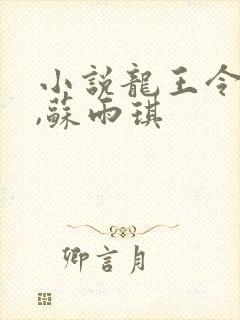 小説龍王令
,蘇雨琪
卿言月